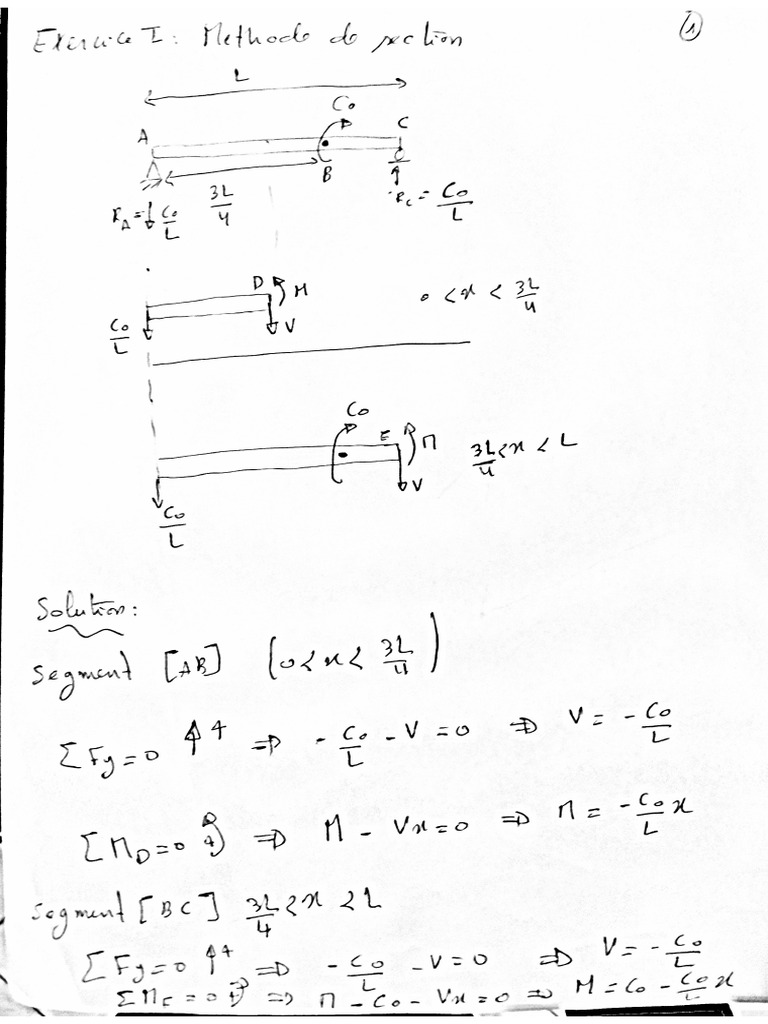 Exercice I : Methode de section
1
L
Co
A
C
B
3L/4
R_A = Co/L
R_C = Co/L
D
M
0 < x < 3L/4
V
Co/L
Co
E
M
3L/4 < x < L
V
Co/L
Solution:
Segment [AB] (0 < x < 3L/4)
ΣFy = 0 ↑+ ⇒ - Co/L - V = 0 ⇒ V = - Co/L
ΣM_D = 0 + ⇒ M - Vx = 0 ⇒ M = - Co/L x
Segment [BC] 3L/4 < x < L
ΣFy = 0 ↑+ ⇒ - Co/L - V = 0 ⇒ V = - Co/L
ΣM_E = 0 + ⇒ M - Co - Vx = 0 ⇒ M = Co - Co/L x